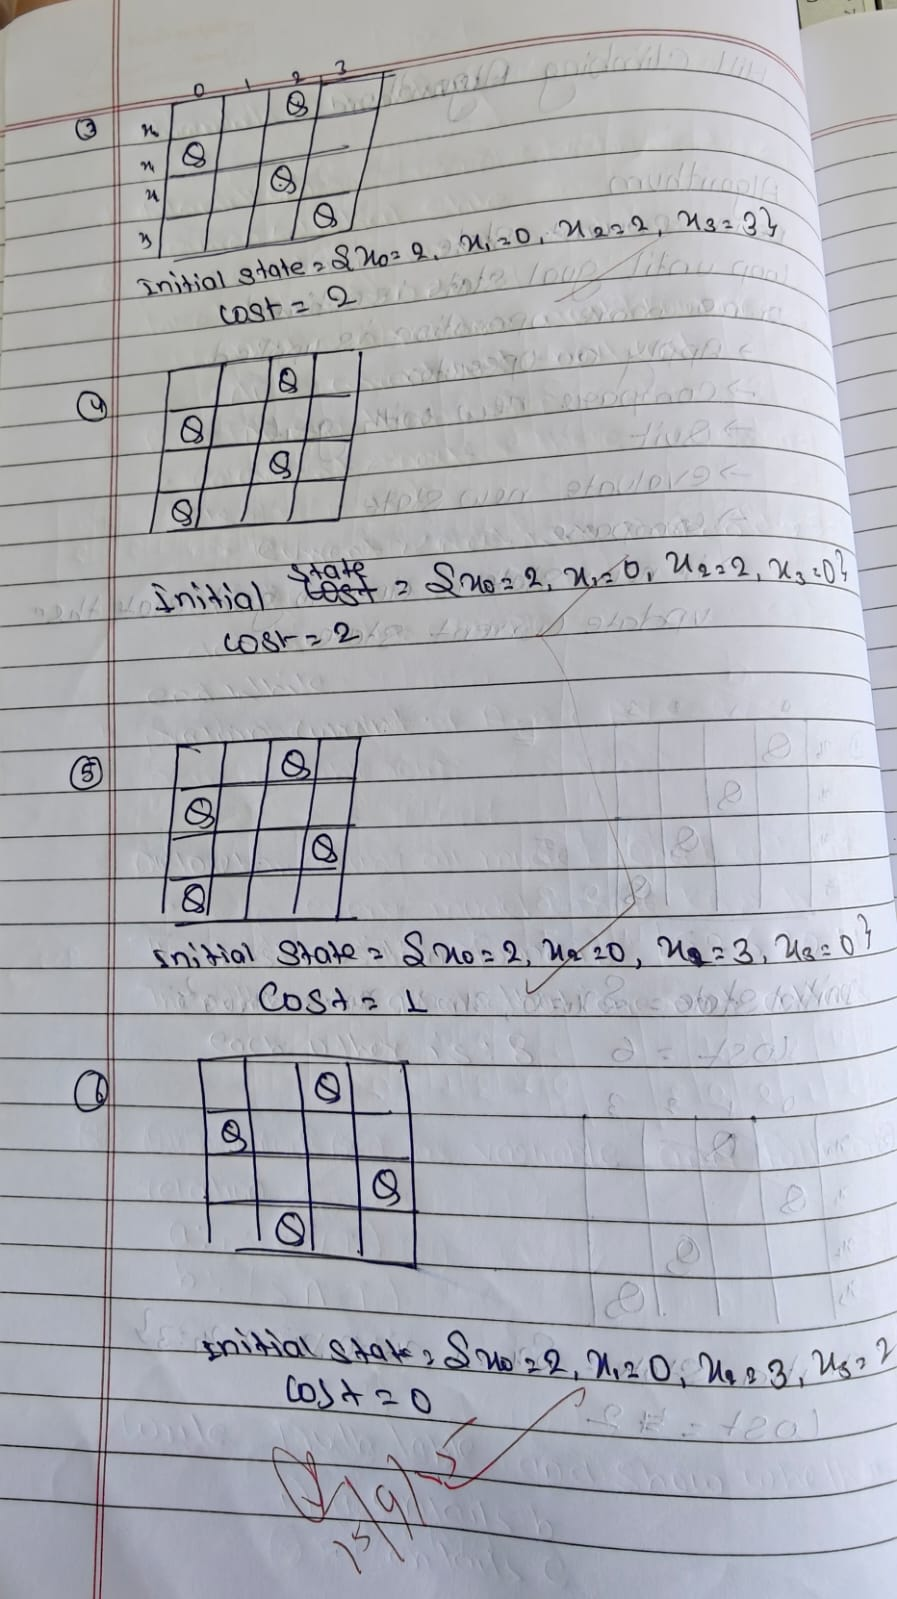 0 1 2 3
③ Q
x Q
x Q
x Q
Initial state = {x0 = 2, x1 = 0, x2 = 2, x3 = 3}
cost = 2
④ Q
Q
Q
Q
State
Initial cost = {x0 = 2, x1 = 0, x2 = 2, x3 = 0}
cost = 2
⑤ Q
Q
Q
Q
Initial State = {x0 = 2, x2 = 0, x2 = 3, x3 = 0}
Cost = 1
⑥ Q
Q
Q
Q
Initial state = {x0 = 2, x1 = 0, x2 = 3, x3 = 2
Cost = 0